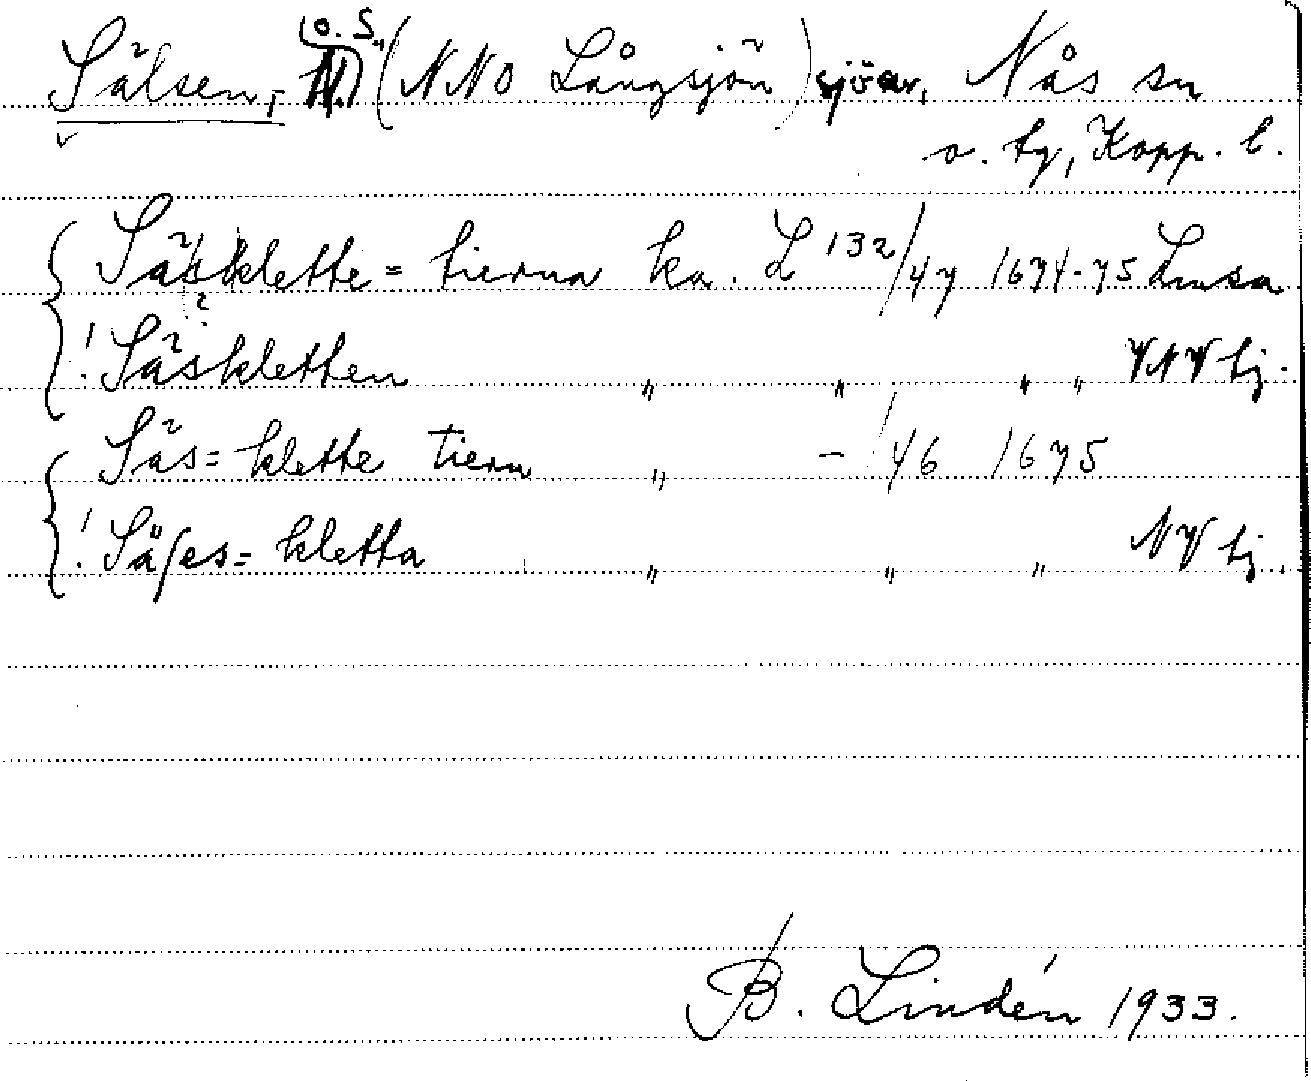 Sälsen, N. o. S. (NNO Långsjön) sjöar, Nås sn
o. tg, Kopp. l.
Säsklette= tierna ka. L 132/47 1674-75 Lmsa
! Säskletten " " " " VNV tj.
Säs= klette tiern " - /46 1675
! Säſes= kletta " " " NV tj.
B. Lindén 1933.